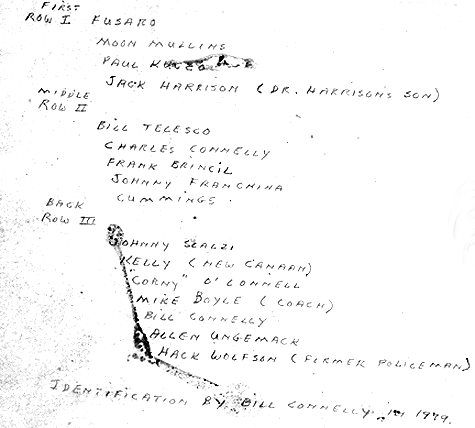 FIRST
ROW I FUSARO
MOON MULLINS
PAUL
JACK HARRISON (DR. HARRISONS SON)
MIDDLE
ROW II
BILL TELESCO
CHARLES CONNELLY
FRANK BRINCIL
JOHNNY FRANCHINA
CUMMINGS
BACK
ROW III
JOHNNY SCALZI
KELLY (NEW CANAAN)
"CORNY" O'CONNELL
MIKE BOYLE (COACH)
BILL CONNELLY
ALLEN UNGEMACK
HACK WOLFSON (FORMER POLICEMAN)
IDENTIFICATION BY BILL CONNELLY IN 1979.